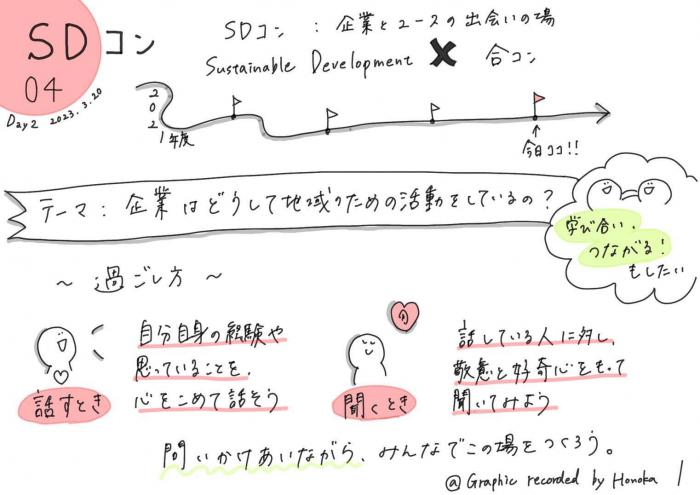 SDコン
04
Day2 2023.3.20
SDコン : 企業とユースの出会いの場
Sustainable Development ✖ 合コン
2021年度
今日ココ!!
テーマ : 企業はどうして地域のための活動をしているの?
学び合い、
つながる!
もしたい
~ 過ごし方 ~
話すとき
自分自身の経験や
思っていることを、
心をこめて話そう
聞くとき
話している人に対し、
敬意と好奇心をもって
聞いてみよう
問いかけあいながら、みんなでこの場をつくろう。
@Graphic recorded by Honoka